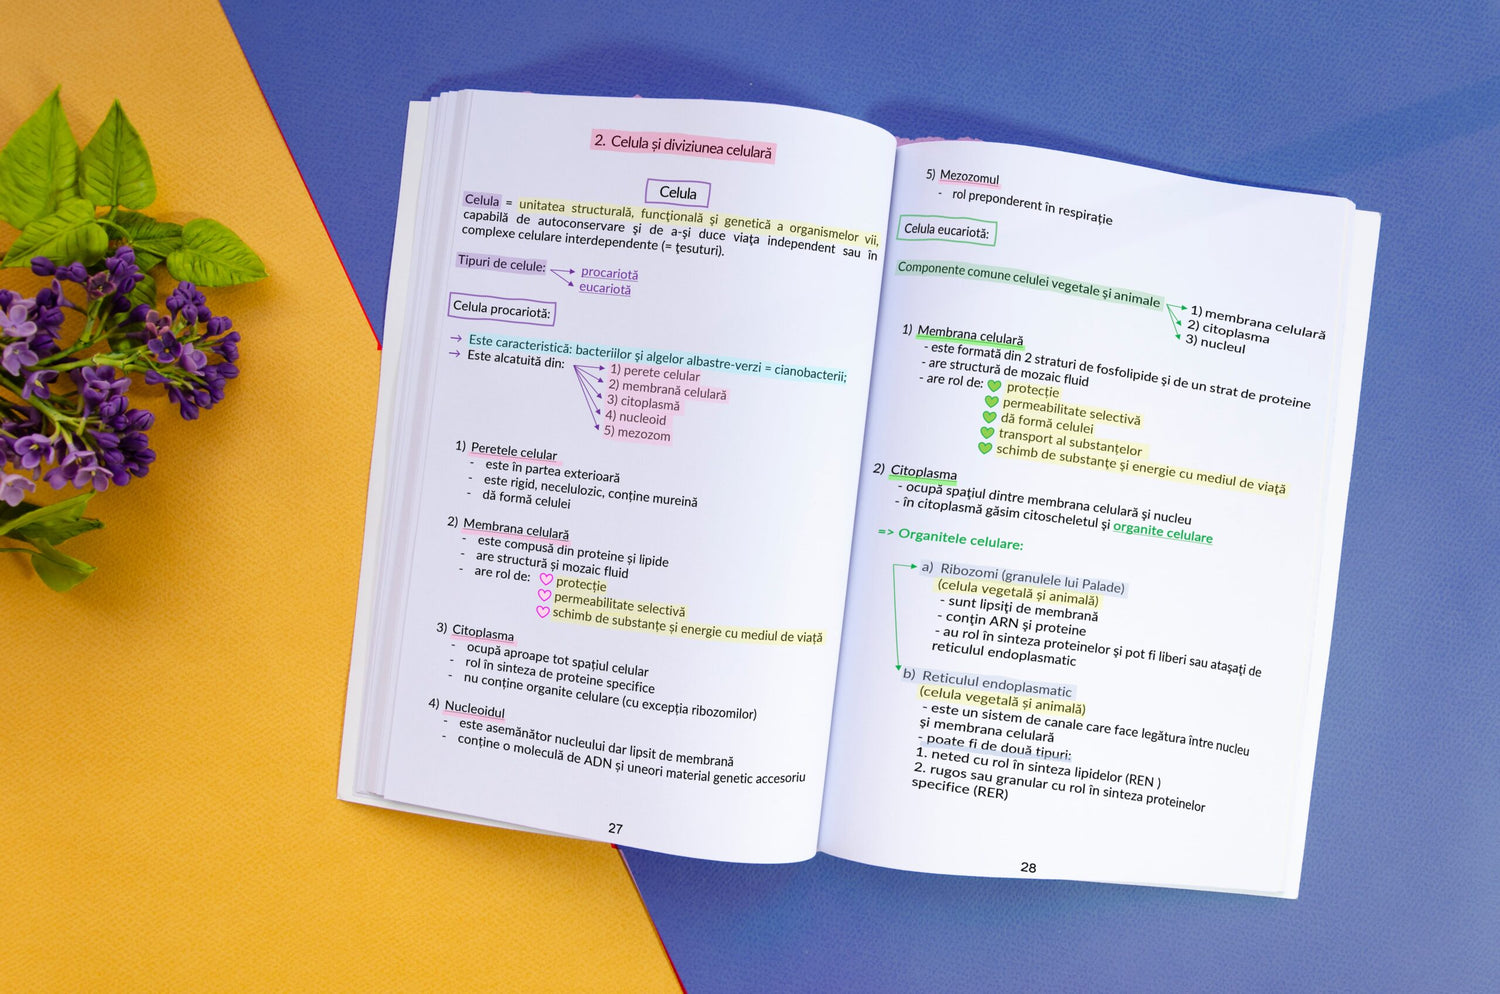 2. Celula și diviziunea celulară
Celula
Celula = unitatea structurală, funcţională şi genetică a organismelor vii,
capabilă de autoconservare şi de a-şi duce viaţa independent sau în
complexe celulare interdependente (= ţesuturi).
Tipuri de celule:
procariotă
eucariotă
Celula procariotă:
→ Este caracteristică: bacteriilor şi algelor albastre-verzi = cianobacterii;
→ Este alcatuită din:
1) perete celular
2) membrană celulară
3) citoplasmă
4) nucleoid
5) mezozom
1) Peretele celular
- este în partea exterioară
- este rigid, necelulozic, conține mureină
- dă formă celulei
2) Membrana celulară
- este compusă din proteine și lipide
- are structură și mozaic fluid
- are rol de:
protecție
permeabilitate selectivă
schimb de substanțe și energie cu mediul de viață
3) Citoplasma
- ocupă aproape tot spațiul celular
- rol în sinteza de proteine specifice
- nu conține organite celulare (cu excepția ribozomilor)
4) Nucleoidul
- este asemănător nucleului dar lipsit de membrană
- conține o moleculă de ADN și uneori material genetic accesoriu
27
5) Mezozomul
- rol preponderent în respirație
Celula eucariotă:
Componente comune celulei vegetale şi animale
1) membrana celulară
2) citoplasma
3) nucleul
1) Membrana celulară
- este formată din 2 straturi de fosfolipide şi de un strat de proteine
- are structură de mozaic fluid
- are rol de:
protecţie
permeabilitate selectivă
dă formă celulei
transport al substanţelor
schimb de substanţe şi energie cu mediul de viaţă
2) Citoplasma
- ocupă spaţiul dintre membrana celulară şi nucleu
- în citoplasmă găsim citoscheletul şi organite celulare
=> Organitele celulare:
a) Ribozomi (granulele lui Palade)
(celula vegetală şi animală)
- sunt lipsiţi de membrană
- conţin ARN şi proteine
- au rol în sinteza proteinelor şi pot fi liberi sau ataşaţi de
reticulul endoplasmatic
b) Reticulul endoplasmatic
(celula vegetală şi animală)
- este un sistem de canale care face legătura între nucleu
şi membrana celulară
- poate fi de două tipuri:
1. neted cu rol în sinteza lipidelor (REN )
2. rugos sau granular cu rol în sinteza proteinelor
specifice (RER)
28